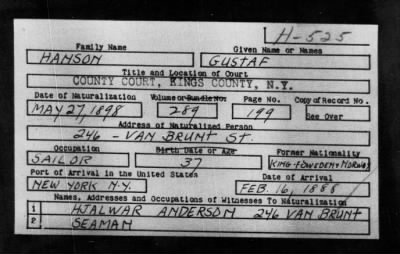 H-525
Family Name Given Name or Names
HANSON GUSTAF
Title and Location of Court
COUNTY COURT, KINGS COUNTY, N.Y.
Date of Naturalization Volume or Bundle No. Page No. Copy of Record No.
MAY 27, 1898 289 199 See Over
Address of Naturalized Person
246 - VAN BRUNT ST.
Occupation Birth Date or Age Former Nationality
SAILOR 37 KING OF SWEDEN & NORWAY
Port of Arrival in the United States Date of Arrival
NEW YORK N.Y. FEB. 16, 1888
Names, Addresses and Occupations of Witnesses To Naturalization
1 HJALWAR ANDERSON 246 VAN BRUNT
2 SEAMAN